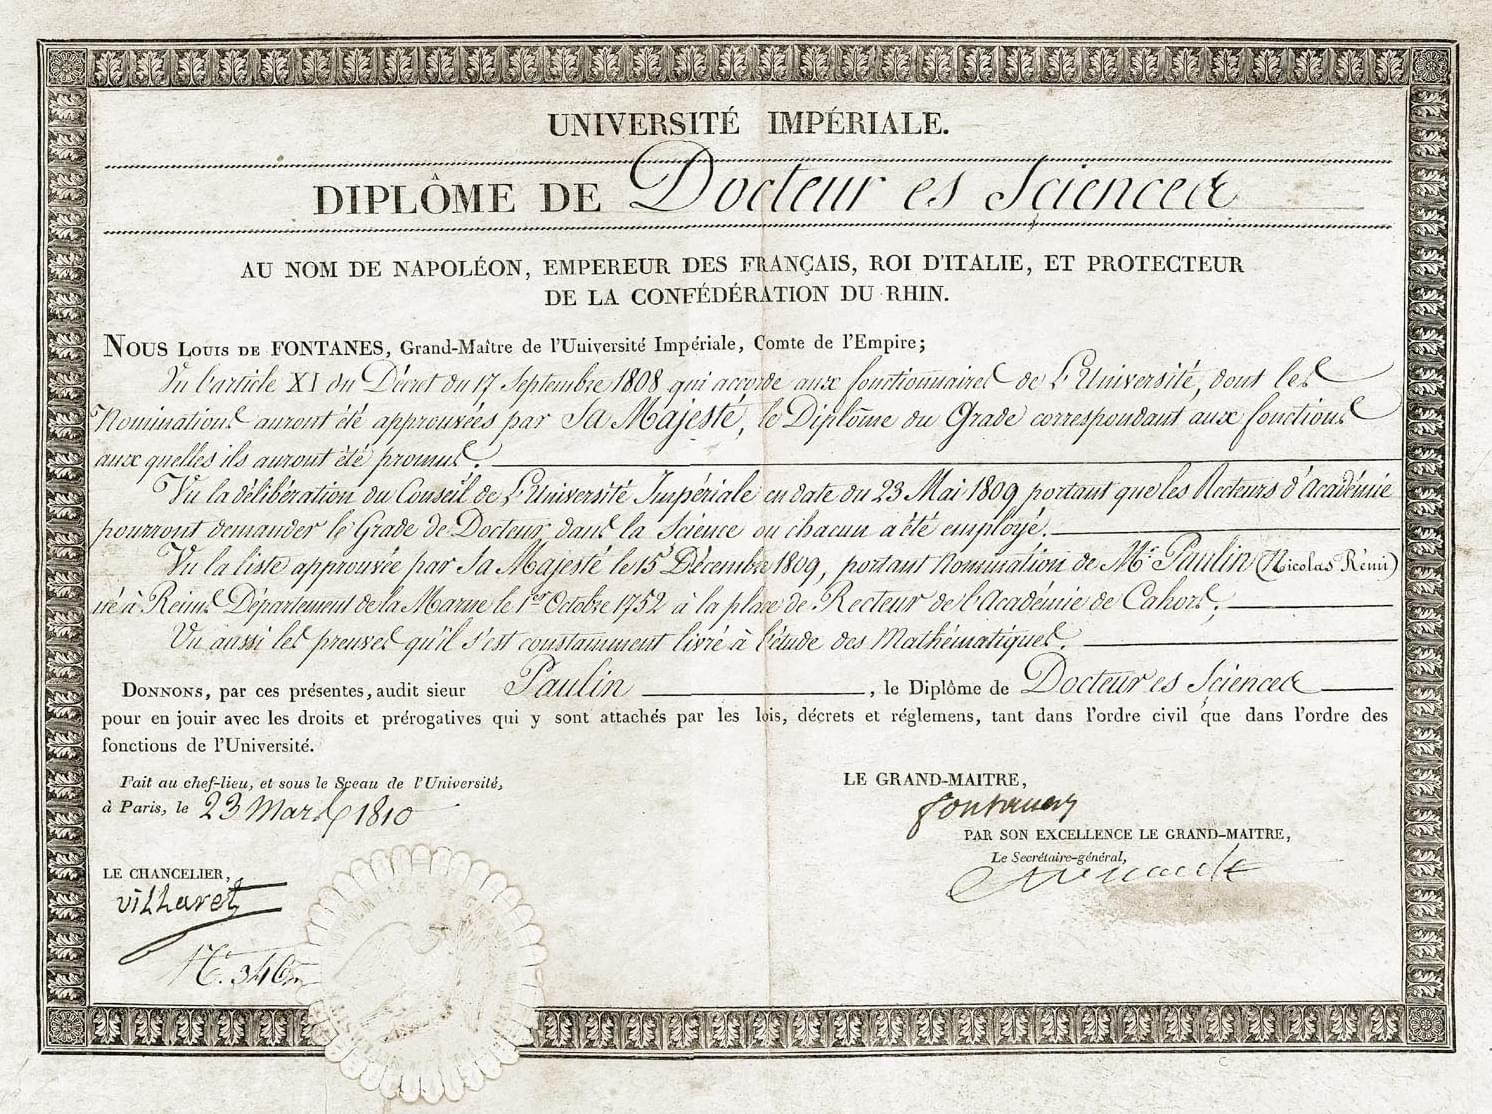 UNIVERSITÉ IMPÉRIALE.
DIPLÔME DE Docteur es Sciences
AU NOM DE NAPOLÉON, EMPEREUR DES FRANÇAIS, ROI D'ITALIE, ET PROTECTEUR
DE LA CONFÉDÉRATION DU RHIN.
NOUS LOUIS DE FONTANES, Grand-Maître de l'Université Impériale, Comte de l'Empire;
Vu l'article XI du Décret du 17 Septembre 1808 qui accorde aux fonctionnaires de L'Université, dont les
Nominations auront été approuvées par Sa Majesté, le Diplôme du Grade correspondant aux fonctions
aux quelles ils auront été promus.
Vu la délibération du Conseil de L'Université Impériale en date du 23 Mai 1809 portant que les Recteurs d'Académie
pourront demander le Grade de Docteur dans la Science ou chacun a été employé.
Vu la liste approuvée par Sa Majesté le 15 Décembre 1809, portant Nomination de Mr. Paulin (Nicolas Rémi)
né à Reims Département de la Marne le 1er Octobre 1752 à la place de Recteur de l'Académie de Cahors,
Vu aussi les preuves qu'il s'est constamment livré à l'étude des Mathématiques.
DONNONS, par ces présentes, audit sieur Paulin, le Diplôme de Docteur es Sciences
pour en jouir avec les droits et prérogatives qui y sont attachés par les lois, décrets et réglemens, tant dans l'ordre civil que dans l'ordre des
fonctions de l'Université.
Fait au chef-lieu, et sous le Sceau de l'Université,
à Paris, le 23 Mars 1810
LE GRAND-MAITRE,
Fontanes
PAR SON EXCELLENCE LE GRAND-MAITRE,
Le Secrétaire-général,
LE CHANCELIER,
Villaret